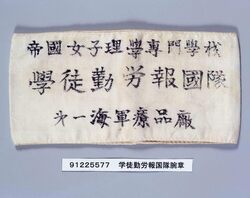 帝國女子理學專門學校
學徒勤労報國隊
第一海軍療品廠
91225577 学徒勤労報国隊腕章